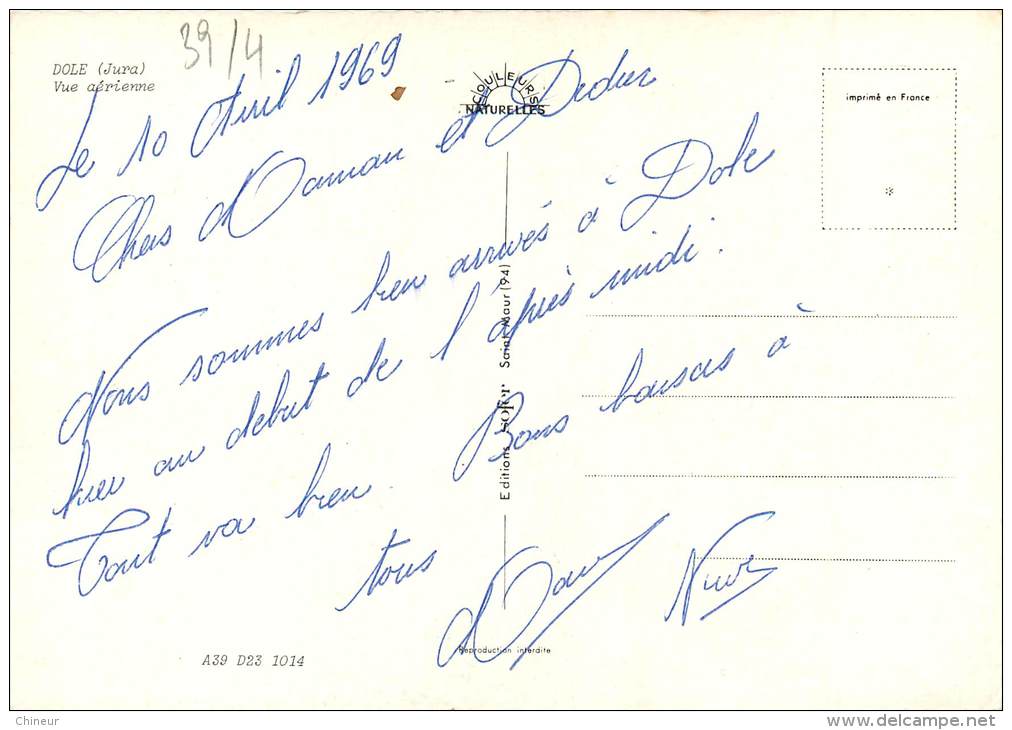 39/4
DOLE (Jura)
Vue aérienne
COULEURS
NATURELLES
imprimé en France
Le 10 Avril 1969
Chers Maman et
Nous sommes bien arrivés à Dole
hier au debut de l'après midi.
Tout va bien. Bons baisers à
tous
Editions SOFER Saint-Maur (94)
Reproduction interdite
A39 D23 1014
Chineur
delcampe.net